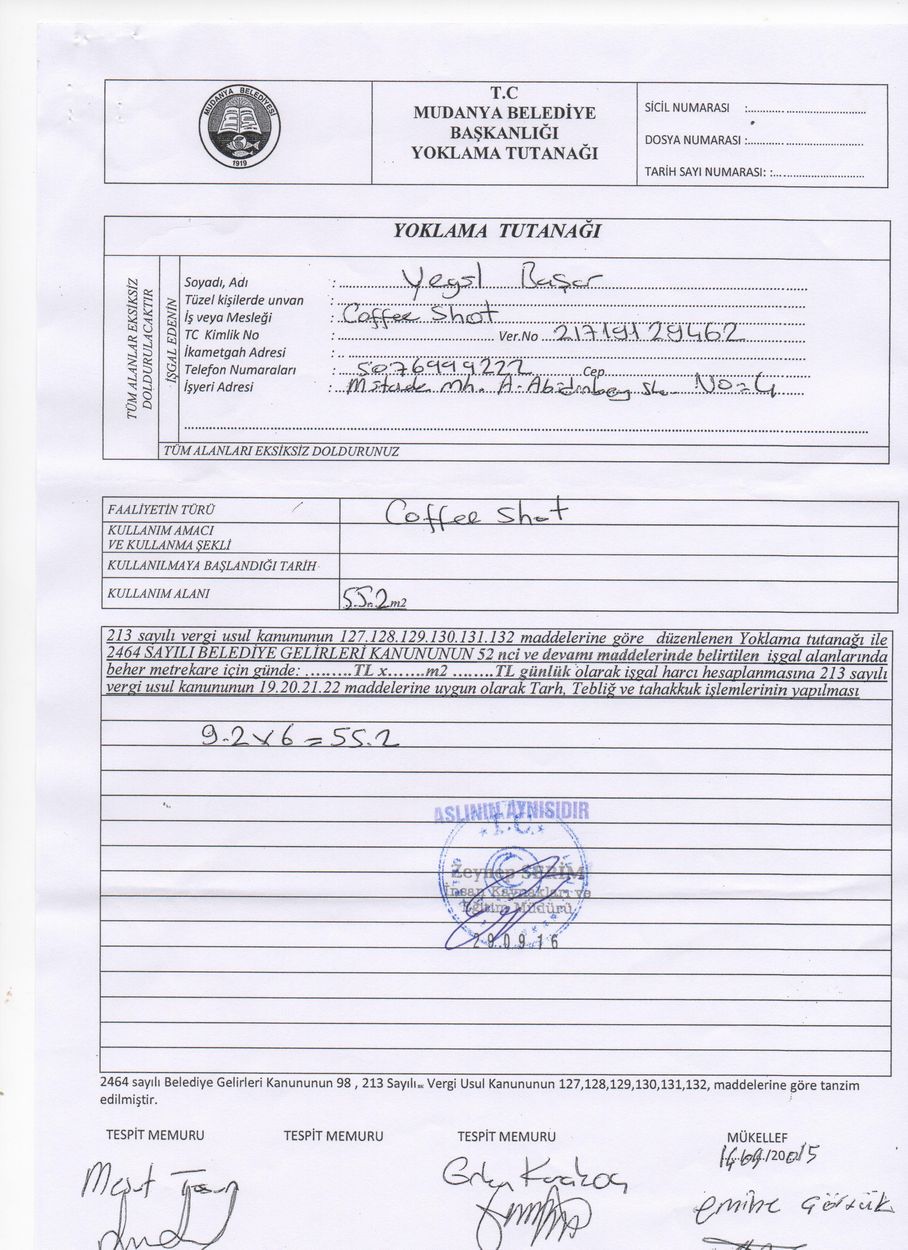 MUDANYA BELEDİYESİ
1919
T.C
MUDANYA BELEDİYE
BAŞKANLIĞI
YOKLAMA TUTANAĞI
SİCİL NUMARASI :
DOSYA NUMARASI :
TARİH SAYI NUMARASI: :
YOKLAMA TUTANAĞI
TÜM ALANLAR EKSİKSİZ
DOLDURULACAKTIR
İŞGAL EDENİN
Soyadı, Adı : Başar
Tüzel kişilerde unvan :
İş veya Mesleği : Coffee Shot
TC Kimlik No : Ver.No 21719129462
İkametgah Adresi :
Telefon Numaraları : 5076999222 Cep
İşyeri Adresi : mh. No=4
TÜM ALANLARI EKSİKSİZ DOLDURUNUZ
FAALİYETİN TÜRÜ Coffee Shot
KULLANIM AMACI
VE KULLANMA ŞEKLİ
KULLANILMAYA BAŞLANDIĞI TARİH
KULLANIM ALANI 55.2 m2
213 sayılı vergi usul kanununun 127.128.129.130.131.132 maddelerine göre düzenlenen Yoklama tutanağı ile
2464 SAYILI BELEDİYE GELİRLERİ KANUNUNUN 52 nci ve devamı maddelerinde belirtilen işgal alanlarında
beher metrekare için günde: .........TL x.......m2 ........TL günlük olarak işgal harcı hesaplanmasına 213 sayılı
vergi usul kanununun 19.20.21.22 maddelerine uygun olarak Tarh, Tebliğ ve tahakkuk işlemlerinin yapılması
9.2x6=55.2
ASLININ AYNISIDIR
T.C.
Zeynep SERİM
İnsan Kaynakları ve
Eğitim Müdürü
290916
2464 sayılı Belediye Gelirleri Kanununun 98 , 213 Sayılı Vergi Usul Kanununun 127,128,129,130,131,132, maddelerine göre tanzim
edilmiştir.
TESPİT MEMURU TESPİT MEMURU TESPİT MEMURU MÜKELLEF
Mesut Emine